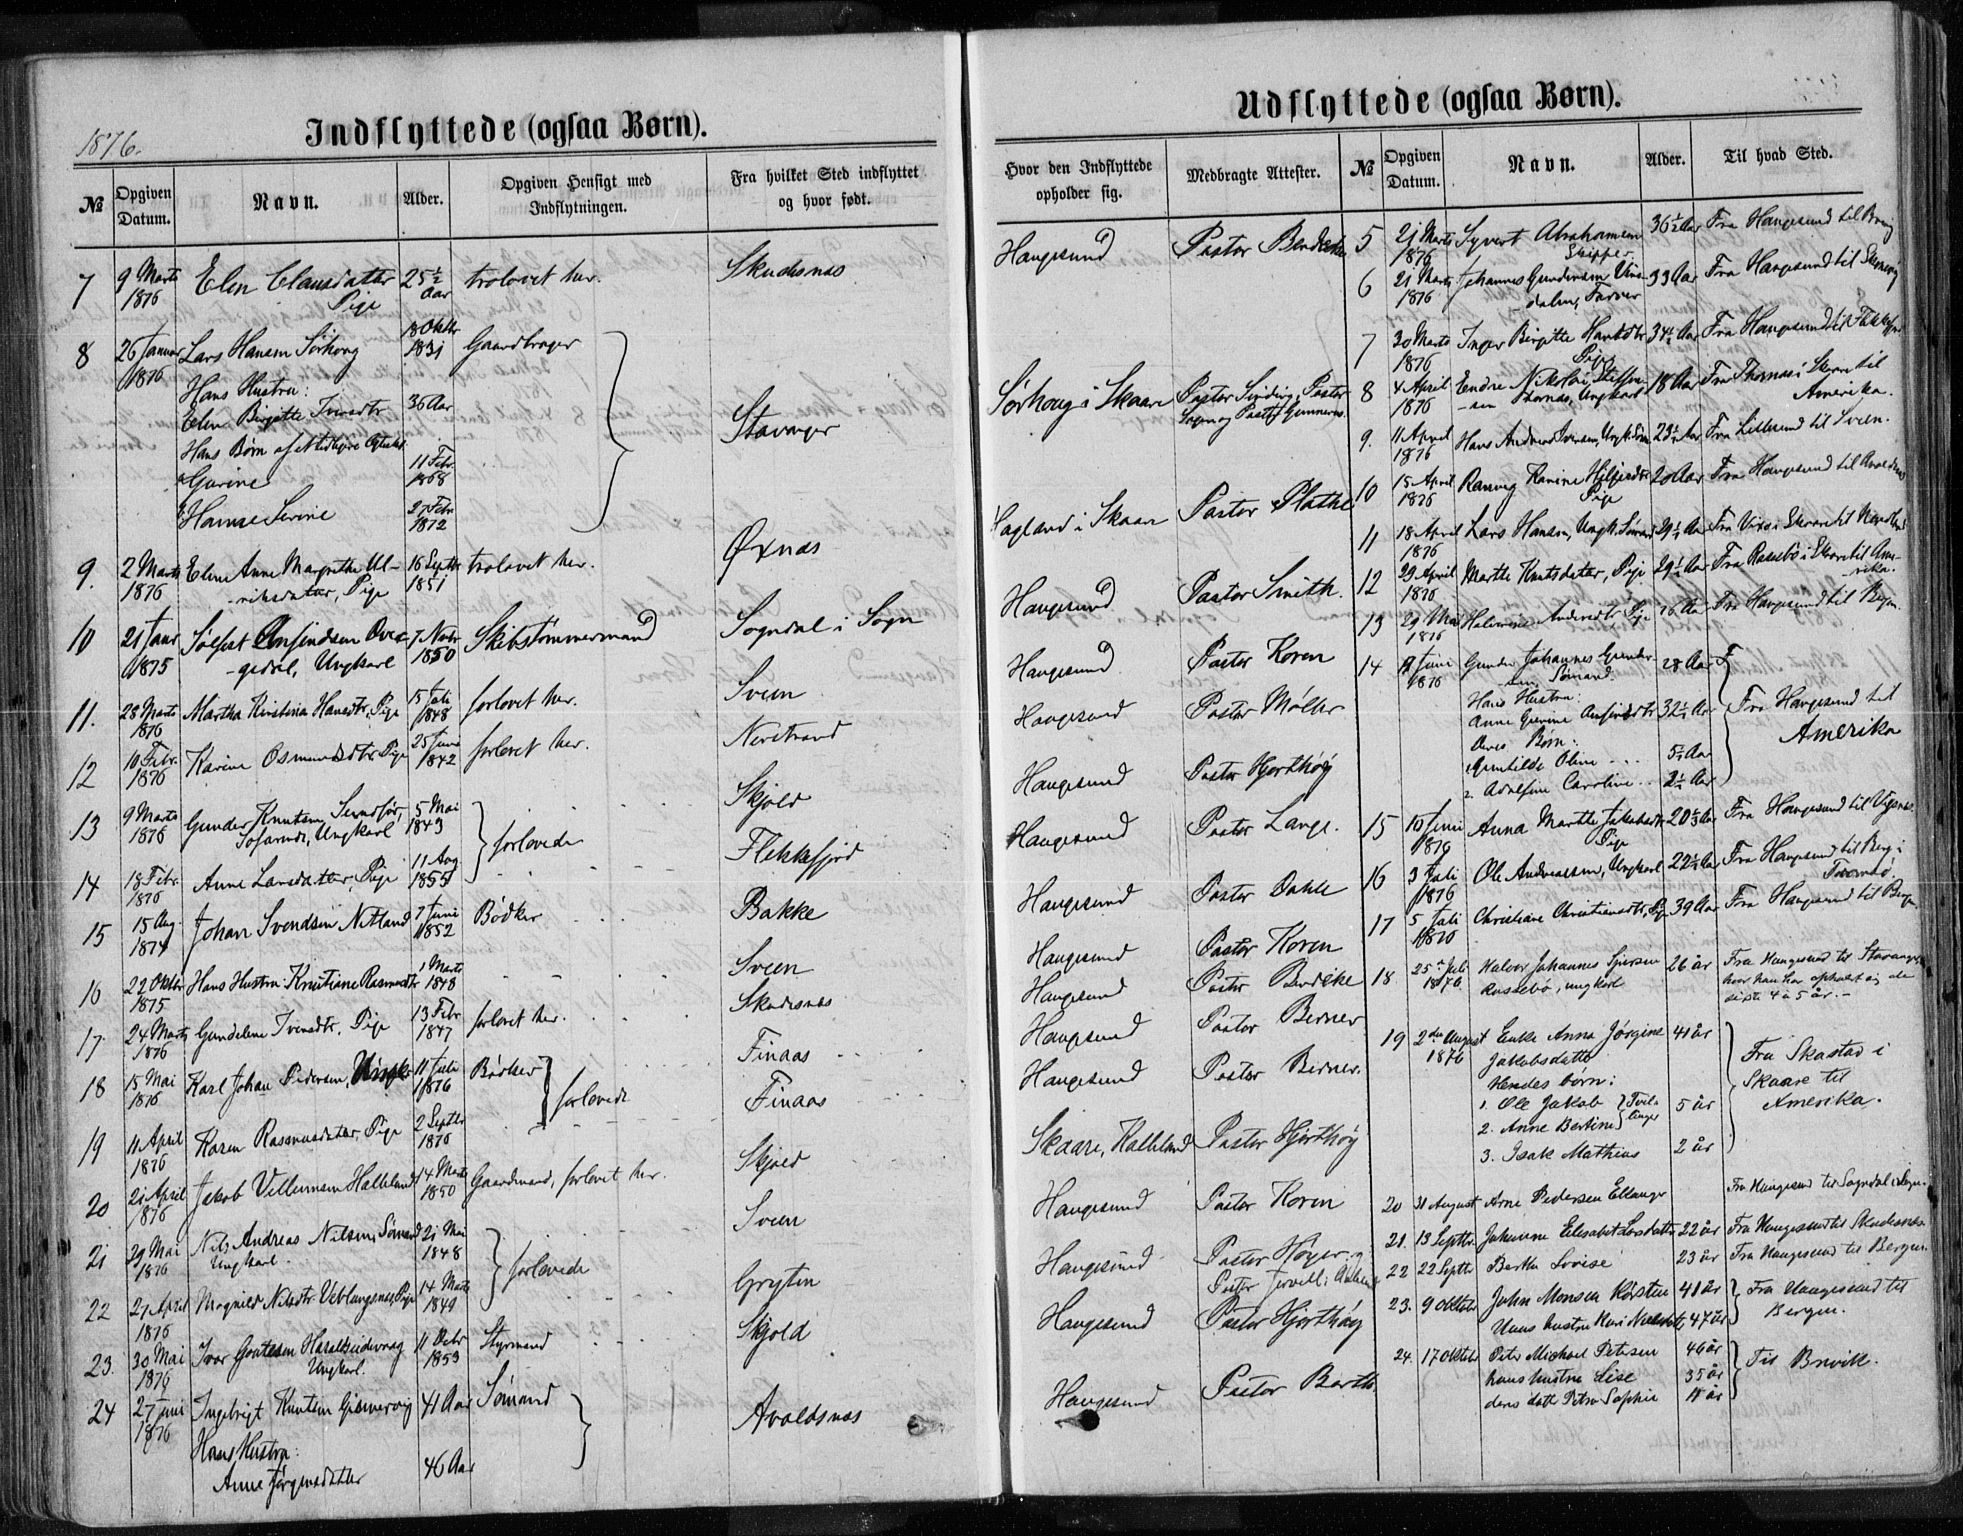 1876.
Indflyttede (ogsaa Børn).
№
Opgiven Datum.
Navn.
Alder.
Opgiven Hensigt med Indflytningen.
Fra hvilket Sted indflyttet og hvor født.
7 9 Marts 1876 Elen Clausdatter Pige 25½ Aar trolovet her. Skudesnæs
8 26 Januar 1876 Lars Hansen Sørhoug 18 Oktbr 1831 Gaardbruger
Hans Hustru:
Elen Birgitte Iversdtr 36 Aar Stavanger
Hans Børn af
Gurine 11 Febr. 1868
Hanne Serine 27 Febr 1872
9. 2 Marts 1876 Elen Anne Margrethe Ul-
riksdatter, Pige 16 Septbr 1851 trolovet her. Øxnæs
10 21 Janr 1875 Ungkarl 7 Novbr 1850 Skibstømmermand Sogndal i Sogn
11. 28 Marts 1876 Martha Kristina Hansdtr, Pige 15 Juli 1848 forlovet her. Sveen
12 10 Febr. 1876 Karine Osmundsdtr, Pige 25 Juni 1842 forlovet her. Nerstrand
13 9 Marts 1876 Gunder Knutsen
Ungkarl 5 Mai 1843 forlovede Skjold
14 18 Febr. 1876 Anne Larsdatter, Pige 11 Aug 1855 Flekkefjord
15 15 Aug 1874 Johan Svendsen Netland 7 Juni 1852 Bødker Bakke
16 22 Oktbr 1875 Hans Hustru Knutiane Rasmusdtr 1 Marts 1848 Sveen
17. 24 Marts 1876 Gundelene Iversdtr. Pige 13 Febr 1847 forlovet her. Skudesnæs
18 15 Mai 1876 Karl Johan Pedersen, 11 Juli 1876 Bødker forlovede Finaas
19 11 April 1876 Karen Rasmusdatter, Pige 2 Septbr 1876 Finaas
20 21 April 1876 Jakob Villumsen Halleland 14 Marts 1850 Gaardmand, forlovet her. Skjold
21 29 Mai 1876 Nils Andreas Nilsen, Sømand 21 Mai 1848
Ungkarl. forlovede Sveen
22 27 April 1876 Magnild Nilsdtr Veblungsnæs, Pige 14 Marts 1849 Gryten
23. 30 Mai 1876 Iver
Ungkarl. 11 1853 Styrmand Skjold
24 27 Juni 1876 Ingebrigt Knutsen Gismervig 41 Aar Sømand Avaldsnæs
Hans Hustru:
Anne Jørgensdatter 46 Aar
Udflyttede (ogsaa Børn).
Hvor den Indflyttede opholder sig.
Medbragte Attester.
№
Opgiven Datum.
Navn.
Alder.
Til hvad Sted.
Haugesund Pastor Bendeke
Sørhoug i Skaare Pastor Sinding, Pastor
Hagland i Skaare Pastor Plathe
Haugesund Pastor Smith.
Haugesund Pastor Koren
Haugesund Pastor Møller
Haugesund Pastor Hjorthøy
Haugesund Pastor Lange.
Haugesund Pastor Dahle
Haugesund Pastor Koren
Haugesund Pastor Bendeke
Haugesund Pastor Berner
Haugesund Pastor Berner.
Skaare, Halleland Pastor Hjorthøy
Haugesund Pastor Koren
Haugesund Pastor Høyer og
Pastor
Haugesund Pastor Hjorthøy
Haugesund Pastor Barth.
5 21 Marts 1876 Syvert Abrahamsen
Skipper 36½ Aar Fra Haugesund til
6 21 Marts 1876 Johannes Gundersen
Farver 33 Aar Fra Haugesund til
7 30 Marts 1876 Inger Birgitte Hansdtr
Pige 34½ Aar Fra Haugesund til Flekkefjord
8 4 April 1876 Endre Nikolai Steffen-
sen Thornæs, Ungkarl 18 Aar Fra Thornæs i Skaare til
Amerika.
9. 11 April 1876 Hans Andreas Iversen, 23½ Aar Fra Lillesund til Sveen.
10 15 April 1876 Ranveg Karine
Pige 20 Aar Fra Haugesund til Avaldsnæs
11 18 April 1876 Lars Hansen, Ungk. Sømand 29½ Aar Fra i Skaare til
12 29 April 1876 Marthe Knutsdatter, Pige 29½ Aar Fra Rossebø i Skaare til Ame-
rika.
13 29 Mai 1876 Andersdtr, Pige 26 Aar Fra Haugesund til Bergen.
14 Juni 1876 Gunder Johannes Gunder-
sen, Sømand. 28 Aar
Hans Hustru:
Anne Gurine 32½ Aar Fra Haugesund til
Deres Børn: Amerika
1. Oline 5½ Aar
2. Adolfine Caroline 2½ Aar
15 10 Juni 1876 Anna Marthe Jakobsdtr
Pige 20½ Aar Fra Haugesund til Vigsnæs
16 3 Juli 1876 Ole Andreassen, Ungkarl 22½ Aar Fra Haugesund til Berg i
Tromsø.
17 5 Juli 1876 Christiane Christiansdtr, Pige 39 Aar Fra Haugesund til Bergen
18 25de Juli 1876. Halvor Johannes Sjursen
Rossebø, ungkarl 26 år Fra Haugesund til Stavanger
hvor han har opholdt sig de
sidste 4 à 5 år.
19 2den August 1876 Enke Anna Jørgine
Jakobsdatter 41 år
Hendes børn:
1. Ole Jakob
2. Anne Bertine Tvil-
linger 5 år
3. Isak Mathias 2 år
Fra Skastad i
Skaare til
Amerika.
20 31 August Arne Pedersen Fra Haugesund til Sogndal i Sogn.
21. 13 Septbr. Johanne Elisabet Larsdatter 22 år Fra Haugesund til Skudesnæs.
22 22 Septbr Berthe Lovise 23 år Fra Haugesund til Bergen.
23. 9 Oktober John Monsen 41 år Fra Haugesund til
Hans hustru Kari Nielsdtr 47 år Bergen.
24. 17 Oktober Peter Michael Petersen 46 år
hans hustru Lise 35 år Til Brevik.
deres datter Petra Sophie år